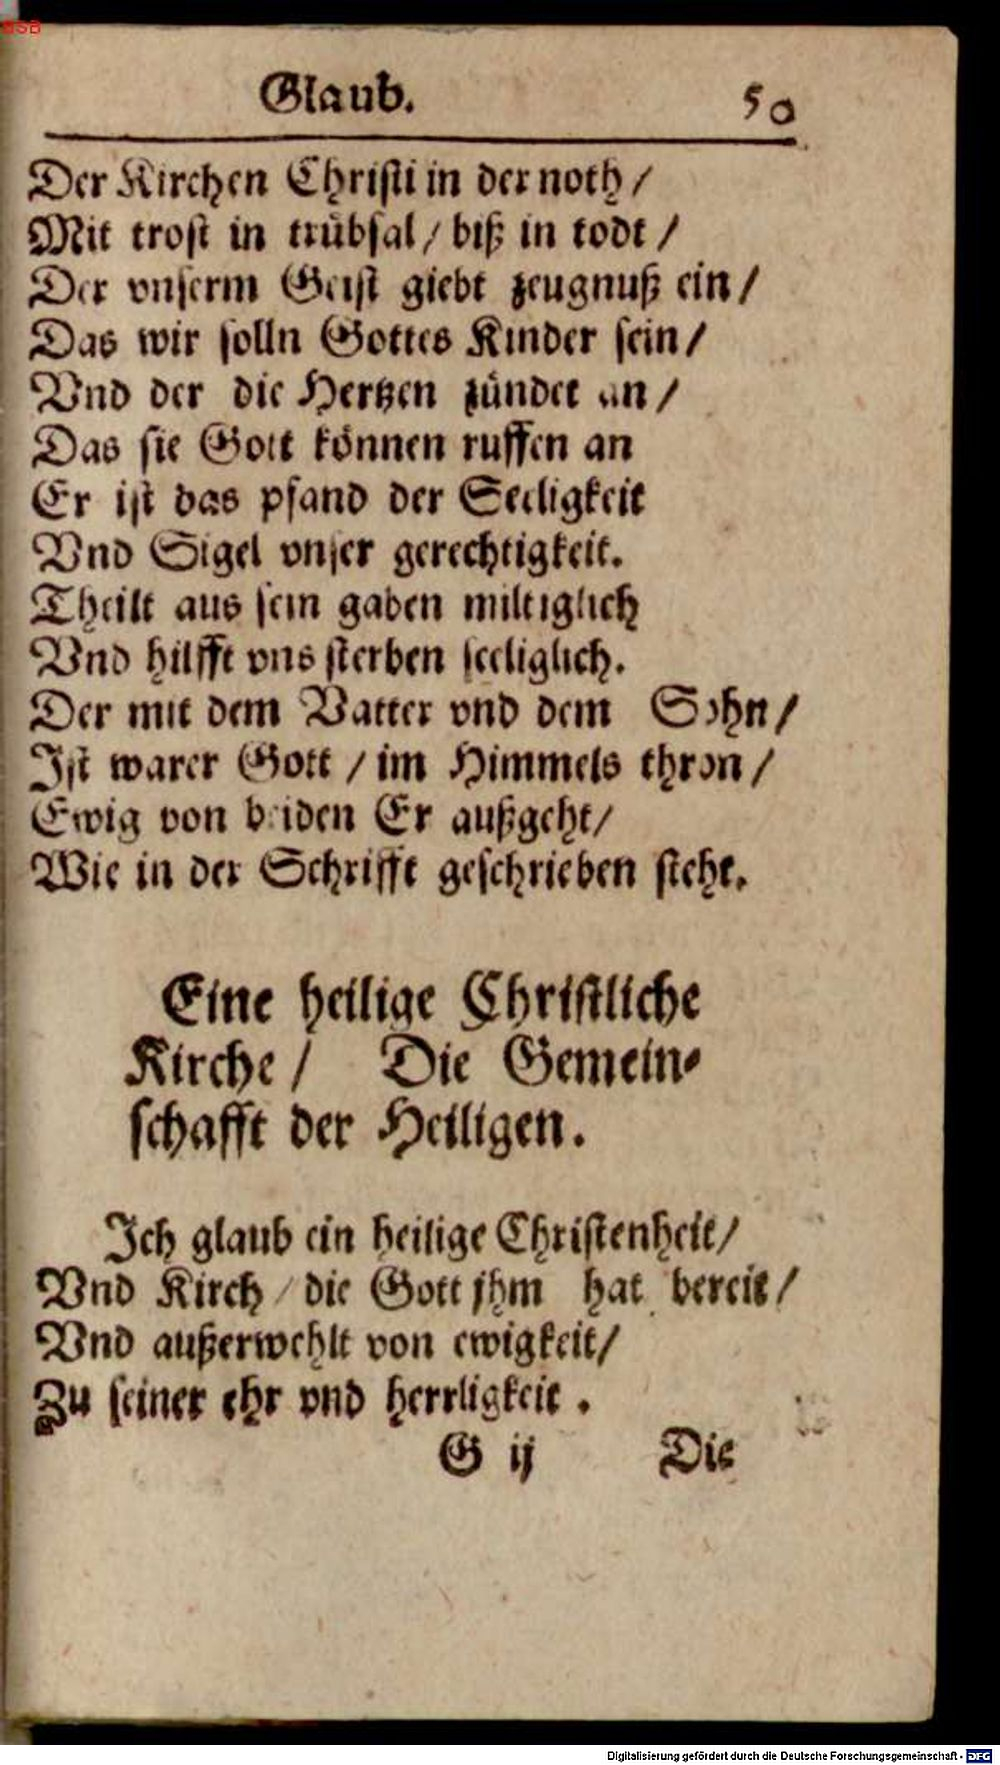 BSB
Glaub. 50
Der Kirchen Christi in der noth /
Mit trost in trübsal / biß in todt /
Der vnserm Geist giebt zeugnuß ein /
Das wir solln Gottes Kinder sein /
Vnd der die Hertzen zündet an /
Das sie Gott können ruffen an
Er ist das pfand der Seeligkeit
Vnd Sigel vnser gerechtigkeit.
Theilt aus sein gaben miltiglich
Vnd hilfft vns sterben seeliglich.
Der mit dem Vatter vnd dem Sohn /
Ist warer Gott / im Himmels thron /
Ewig von beiden Er außgeht /
Wie in der Schrifft geschrieben steht.
Eine heilige Christliche
Kirche / Die Gemein-
schafft der Heiligen.
Ich glaub ein heilige Christenheit /
Vnd Kirch / die Gott jhm hat bereit /
Vnd außerwehlt von ewigkeit /
Zu seiner ehr vnd herrligkeit .
G ij Die
Digitalisierung gefördert durch die Deutsche Forschungsgemeinschaft - DFG